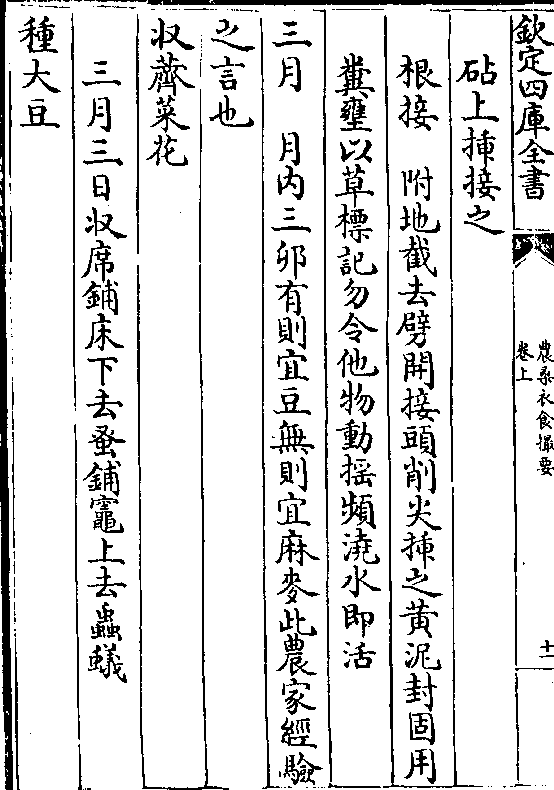 欽定四庫全書
農桒衣食撮要
卷上
十一
砧上揷接之
根接　附地截去劈開接頭削尖揷之黄泥封固用
糞壅以草標記勿令他物動揺頻澆水即活
三月　月内三卯有則宜豆無則宜麻麥此農家經驗
之言也
収薺菜花
三月三日収席鋪床下去蚤鋪竈上去蟲蟻
種大豆